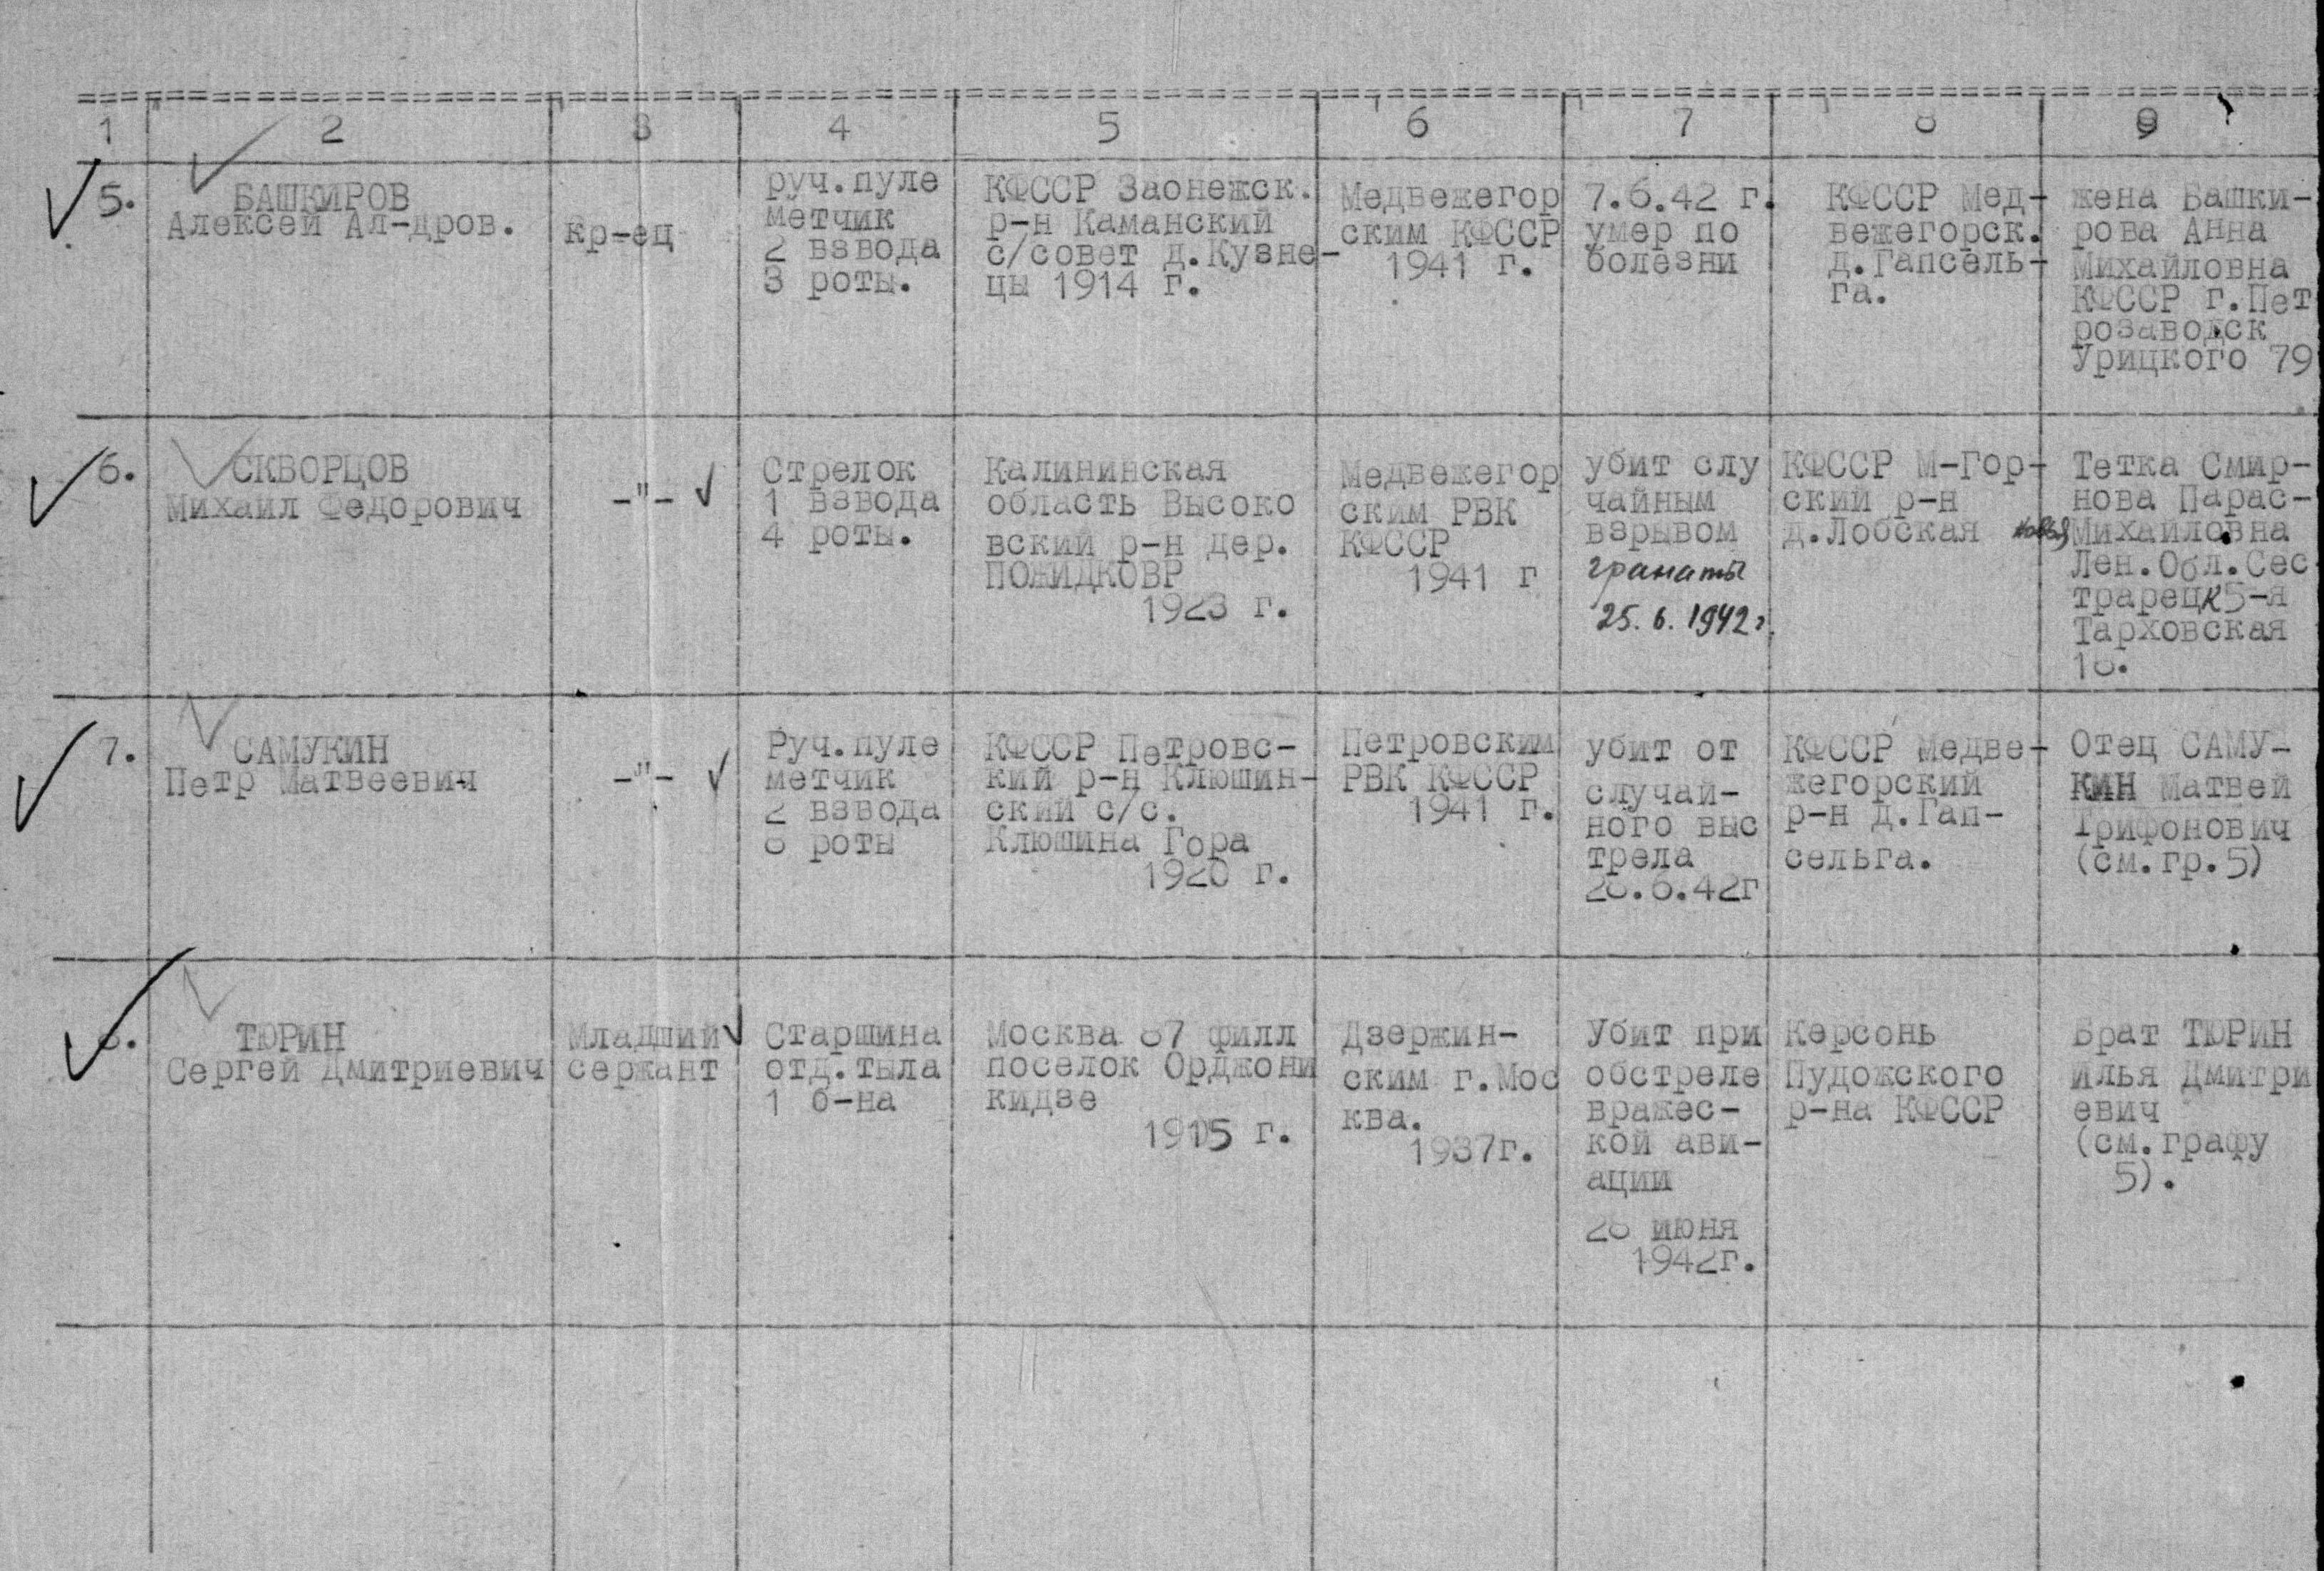 1 2 3 4 5 6 7 8 9
5.
БАШКИРОВ
Алексей Ал-дров.
кр-ец
руч.пуле
метчик
2 взвода
3 роты.
КФССР Заонежск.
р-н Каманский
с/совет д.Кузне-
цы 1914 г.
Медвежегор
ским КФССР
1941 г.
7.6.42 г.
умер по
болезни
КФССР Мед-
вежегорск.
д.Гапсель-
га.
жена Башки-
рова Анна
Михайловна
КФССР г.Пет
розаводск
Урицкого 79
6.
СКВОРЦОВ
Михаил Федорович
-"-
Стрелок
1 взвода
4 роты.
Калининская
область Высоко
вский р-н дер.
ПОЖИДКОВР
1923 г.
Медвежегор
ским РВК
КФССР
1941 г
убит слу
чайным
взрывом
гранаты
25.6.1942г.
КФССР М-Гор-
ский р-н
д.Лобская новая
Тетка Смир-
нова Парас-
Михайловна
Лен.Обл.Сес
трарецк 5-я
Тарховская
7.
САМУКИН
Петр Матвеевич
-"-
Руч.пуле
метчик
2 взвода
роты
КФССР Петровс-
кий р-н Клюшин-
ский с/с.
Клюшина Гора
1920 г.
Петровским
РВК КФССР
1941 г.
убит от
случай-
ного выс
трела
КФССР Медве-
жегорский
р-н д.Гап-
сельга.
Отец САМУ-
КИН Матвей
Трифонович
(см.гр.5)
8.
ТЮРИН
Сергей Дмитриевич
Младший
сержант
Старшина
отд.тыла
1 б-на
Москва 87 филл
поселок Орджони
кидзе
1915 г.
Дзержин-
ским г.Мос
ква.
1937г.
Убит при
обстреле
вражес-
кой ави-
ации
июня
1942г.
Керсонь
Пудожского
р-на КФССР
Брат ТЮРИН
Илья Дмитри
евич
(см.графу
5).